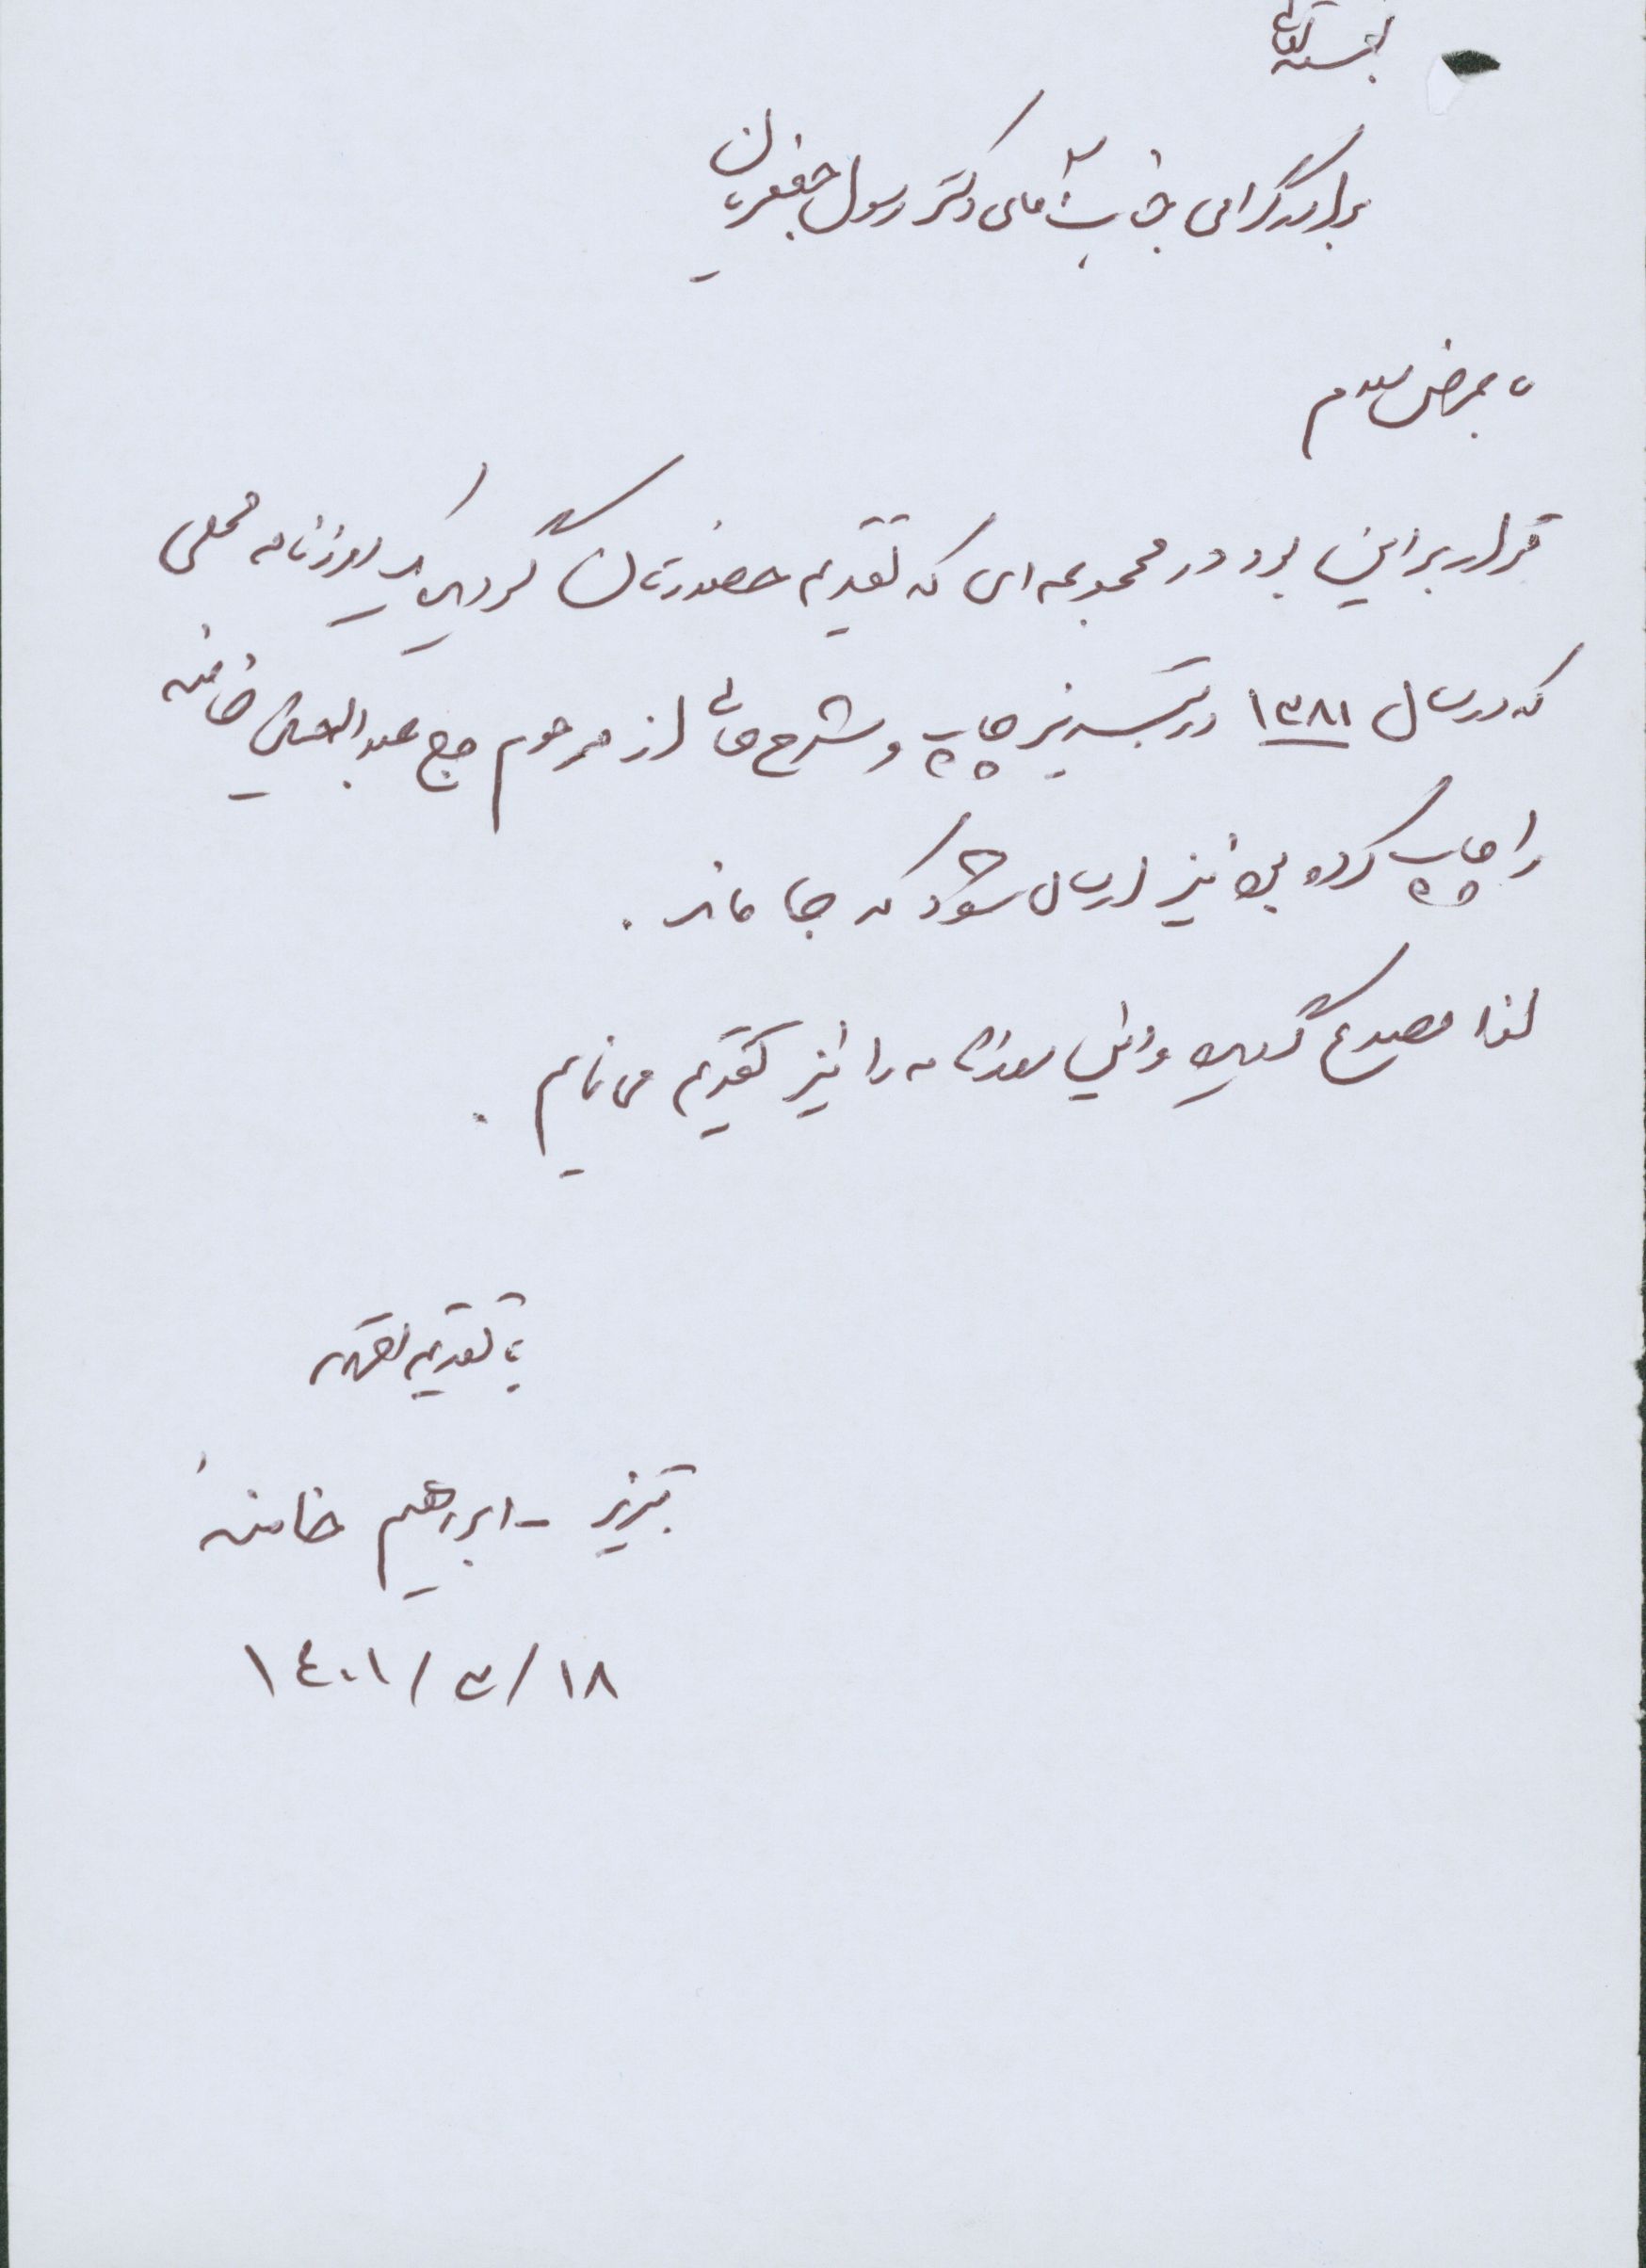 بسمه تعالی
برادر گرامی جناب آقای دکتر رسول جعفریان
با عرض سلام
قرار بر این بود در مجموعه ای که تقدیم حضورتان گردید یک روزنامه محلی
که در سال ۱۳۸۱ در تبریز چاپ و شرح حالی از مرحوم حاج عبدالحسین خامنه
را چاپ کرده بود نیز ارسال شود که جا ماند .
لذا مصدع گردیده و این روزنامه را نیز تقدیم می نمایم .
با تقدیم
تبریز - ابراهیم خامنه
۱۴۰۱/۳/۱۸